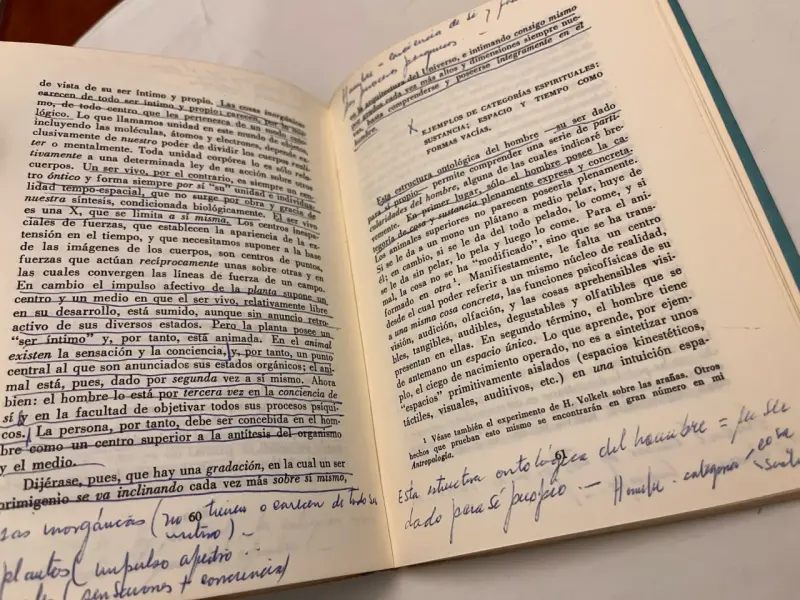 de vista de su ser íntimo y propio. Las cosas inorgánicas
carecen de todo ser íntimo y propio; carecen, por lo mis-
mo, de todo centro que les pertenezca de un modo, onto-
lógico. Lo que llamamos unidad en este mundo de objetos,
incluyendo las moléculas, átomos y electrones, depende ex-
clusivamente de nuestro poder de dividir los cuerpos real-
o mentalmente. Toda unidad corpórea lo es sólo rela-
tivamente a una determinada ley de su acción sobre otros
cuerpos. Un ser vivo, por el contrario, es siempre un cen-
tro óntico y forma siempre por sí "su" unidad e individua-
lidad tempo-espacial, que no surge por obra y gracia de
nuestra síntesis, condicionada biológicamente. El ser vivo
es una X, que se limita a sí misma. Los centros inespa-
ciales de fuerzas, que establecen la apariencia de la ex-
tensión en el tiempo, y que necesitamos suponer a la base
de las imágenes de los cuerpos, son centros de puntos,
fuerzas que actúan recíprocamente unas sobre otras y en
las cuales convergen las líneas de fuerza de un campo.
En cambio el impulso afectivo de la planta supone un
centro y un medio en que el ser vivo, relativamente libre
en su desarrollo, está sumido, aunque sin anuncio retro-
activo de sus diversos estados. Pero la planta posee un
"ser íntimo" y, por tanto, está animada. En el animal
existen la sensación y la conciencia, y, por tanto, un punto
central al que son anunciados sus estados orgánicos; el ani-
mal está, pues, dado por segunda vez a sí mismo. Ahora
bien: el hombre lo está por tercera vez en la conciencia de
sí y en la facultad de objetivar todos sus procesos psíqui-
cos. La persona, por tanto, debe ser concebida en el hom-
bre como un centro superior a la antítesis del organismo
y el medio.
Dijérase, pues, que hay una gradación, en la cual un ser
primigenio se va inclinando cada vez más sobre sí mismo,
60
inorgánicas (no tienen o carecen de todo ser
plantas (impulso afectivo
sensaciones + conciencia)
Hombre - conciencia de sí y
procesos psíquicos -
la arquitectura del Universo, e intimando consigo mismo
cada vez más altos y dimensiones siempre nue-
hasta comprenderse y poseerse íntegramente en el
hombre.
X EJEMPLOS DE CATEGORÍAS ESPIRITUALES:
SUSTANCIA; ESPACIO Y TIEMPO COMO
FORMAS VACÍAS.
Esta estructura ontológica del hombre —su ser dado
para sí propio— permite comprender una serie de parti-
cularidades del hombre, alguna de las cuales indicaré bre-
vemente. En primer lugar, sólo el hombre posee la ca-
tegoría de cosa y sustancia plenamente expresa y concreta.
Los animales superiores no parecen poseerla plenamente.
Si se le da a un mono un plátano a medio pelar, huye de
él; en cambio, si se le da del todo pelado, lo come, y si
se le da sin pelar, lo pela y luego lo come. Para el ani-
mal, la cosa no se ha "modificado", sino que se ha trans-
formado en otra 1. Manifiestamente, le falta un centro
desde el cual poder referir a un mismo núcleo de realidad,
a una misma cosa concreta, las funciones psicofísicas de su
visión, audición, olfación, y las cosas aprehensibles visi-
bles, tangibles, audibles, degustables y olfatibles que se
presentan en ellas. En segundo término, el hombre tiene
de antemano un espacio único. Lo que aprende, por ejem-
plo, el ciego de nacimiento operado, no es a sintetizar unos
"espacios" primitivamente aislados (espacios kinestéticos,
táctiles, visuales, auditivos, etc.) en una intuición espa-
1 Véase también el experimento de H. Volkelt sobre las arañas. Otros
hechos que prueban esto mismo se encontrarán en gran número en mi
Antropología.
61
Esta estructura ontológica del hombre = su ser
dado para sí propio — Hombre - categorías, cosa